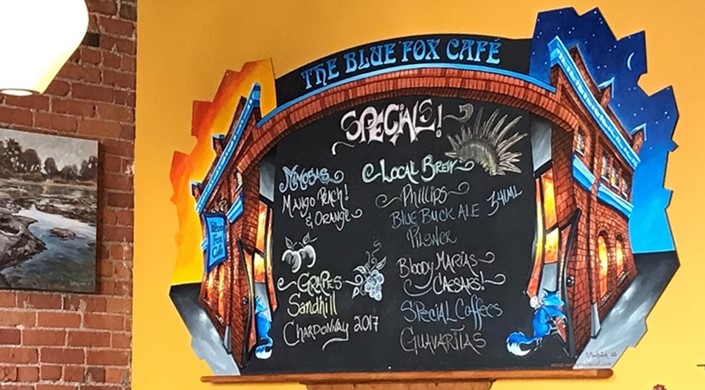 THE BLUE FOX CAFÉ
SPECIALS!
MIMOSAS
MANGO PEACH!
& ORANGE
GRAPES
Sandhill
CHARDONNAY 2017
LOCAL BREW
Phillips
BLUE BUCK ALE 341ML
PILSNER
BLOODY MARIAS
CAESARS!
SPECIAL COFFEES
GUAVARITAS